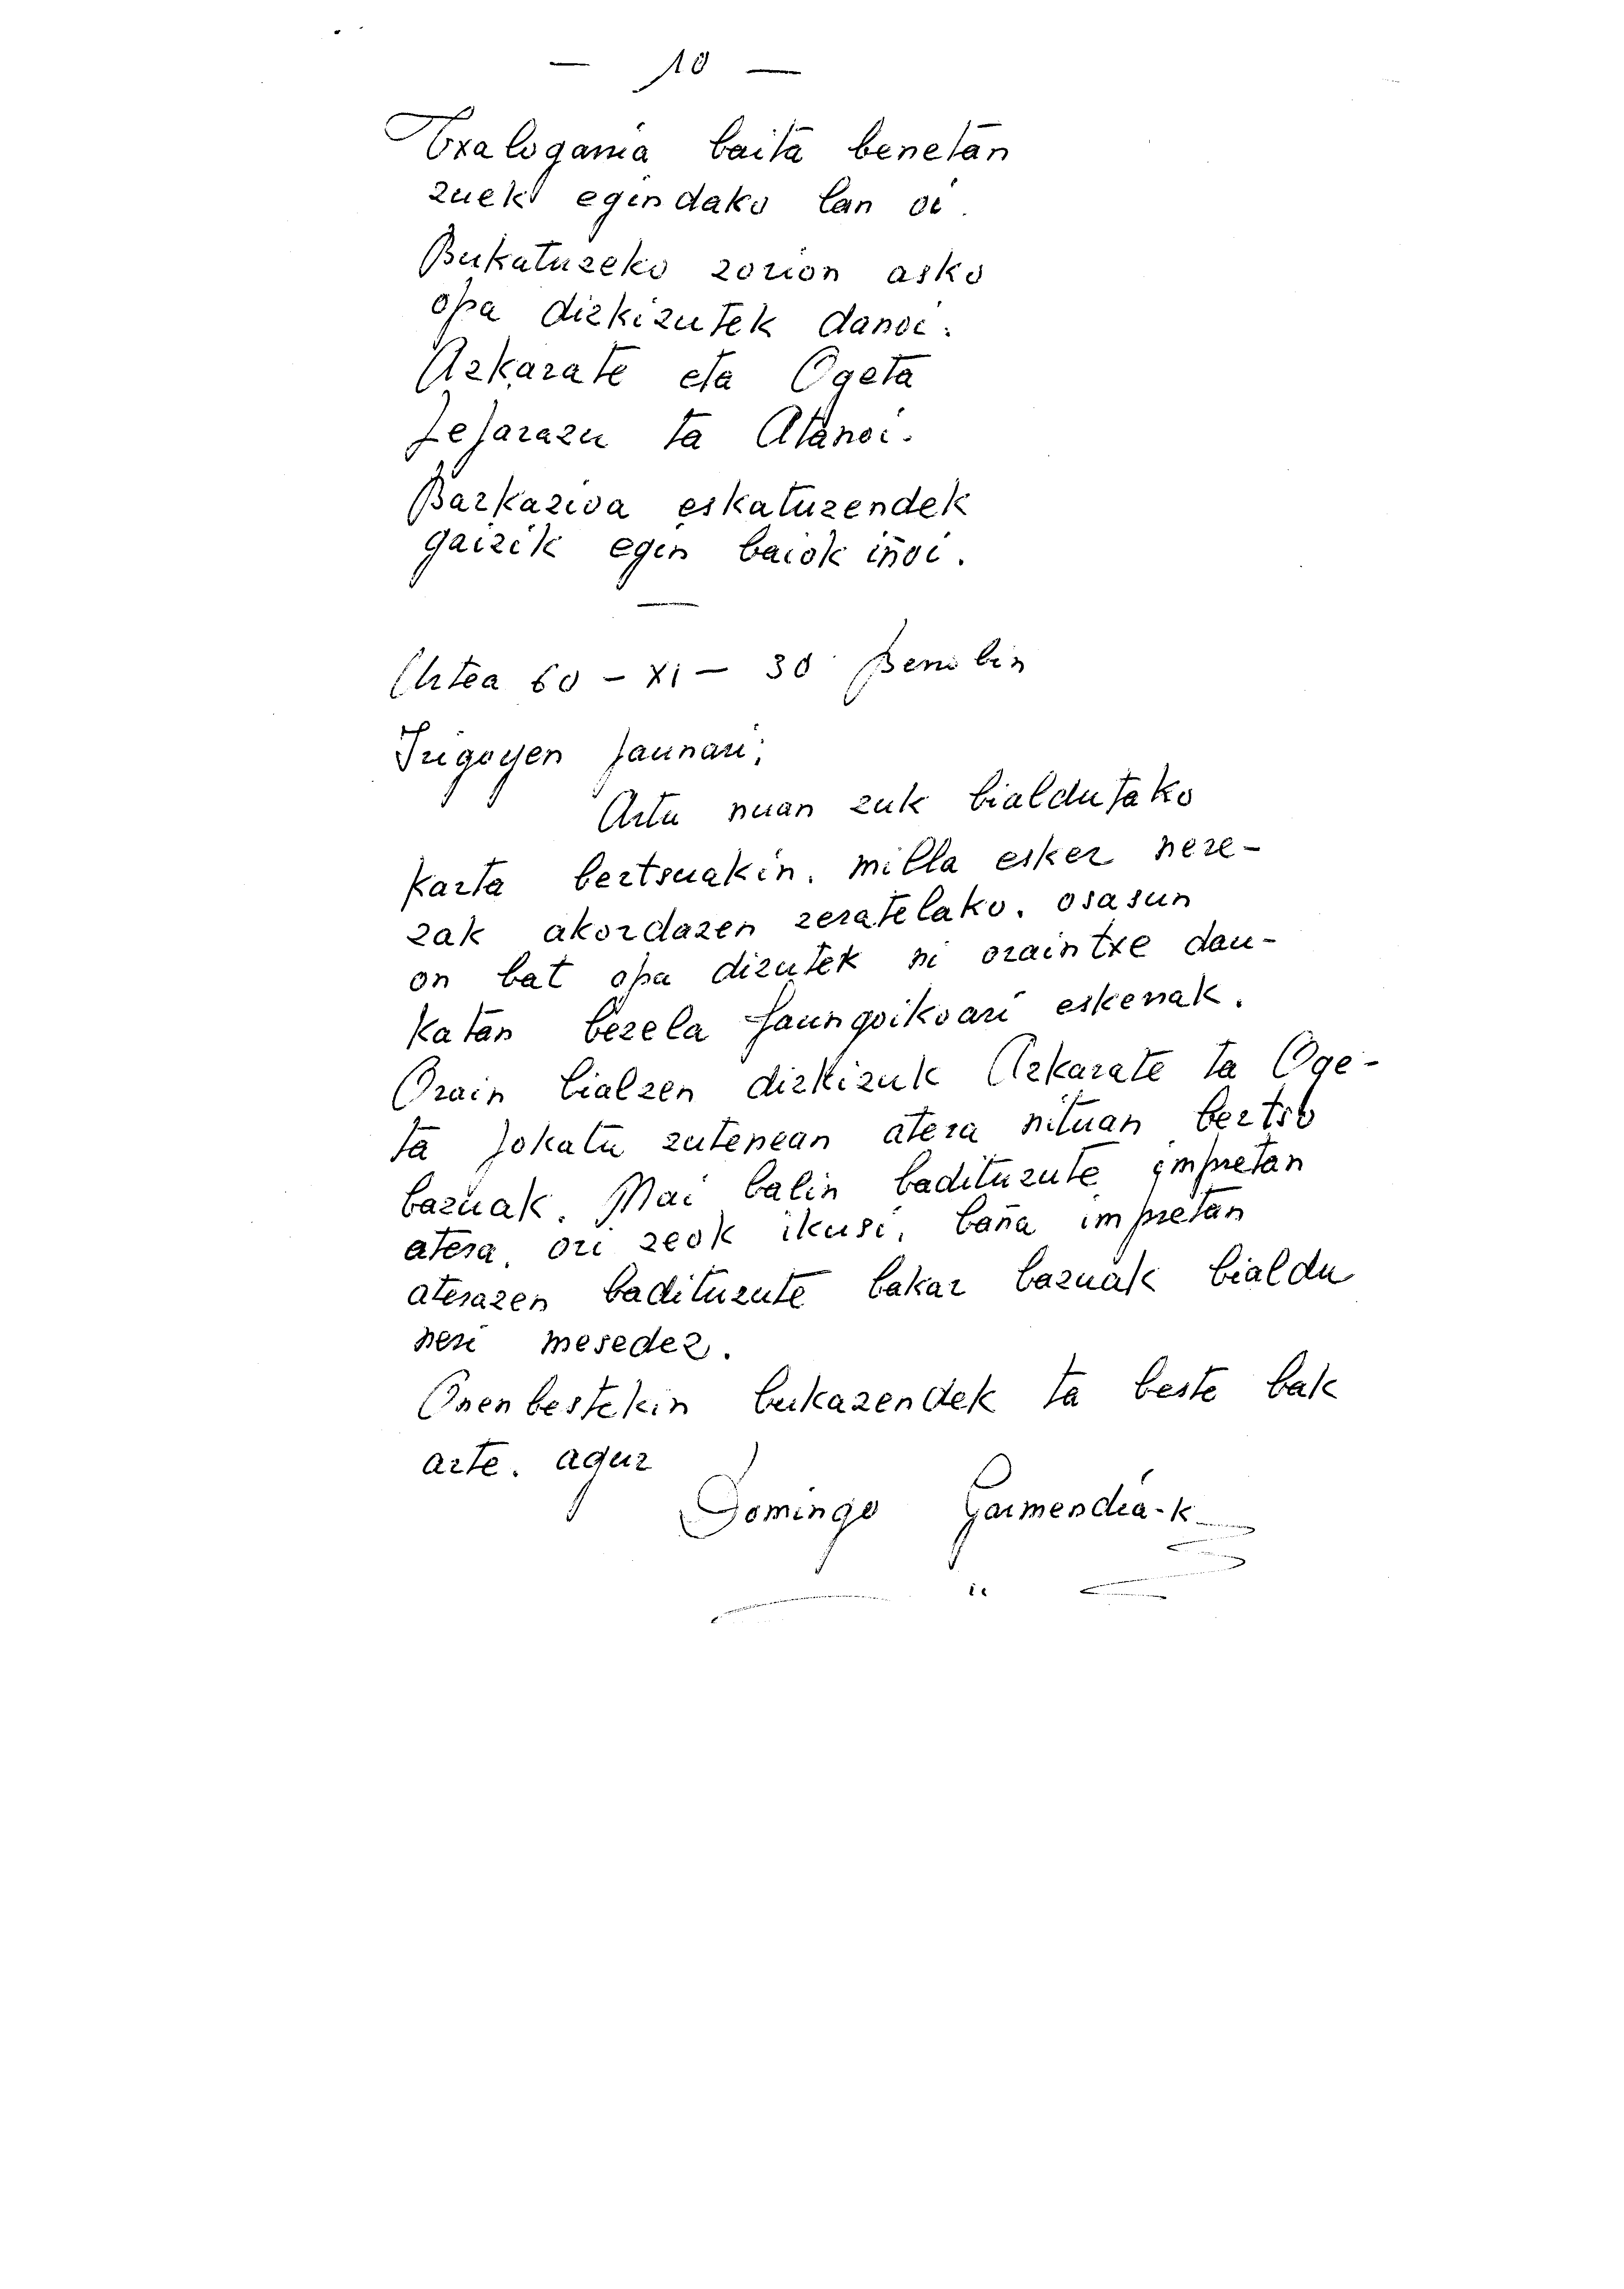 — 10 —
Txalogarria baita benetan
zuek egindako lan oi.
Bukatuzeko zorion asko
opa dizkizutek danoi.
Azkarate eta Ogeta
Lejarazu ta Atanoi.
Barkazioa eskatuzendek
gaizik egin baiok iñoi.
Urtea 60 – XI – 30 Berrobin
Irigoyen Jaunari;
Artu nuan zuk bialdutako
karta bertsuakin. milla esker nere-
zak akordazen zeratelako. osasun
on bat opa dizutek ni oraintxe dau-
katan bezela Jaungoikoari eskerrak.
Orain bialzen dizkizuk Azkarate ta Oge-
ta jokatu zutenean atera nituan bertso
bazuak. Mai balin badituzute impretan
atera. ori zeok ikusi, baña impretan
aterazen badituzute bakar bazuak bialdu
neri mesedez.
Onenbestekin bukazendek ta beste bak
arte. agur
Domingo Garmendia-k